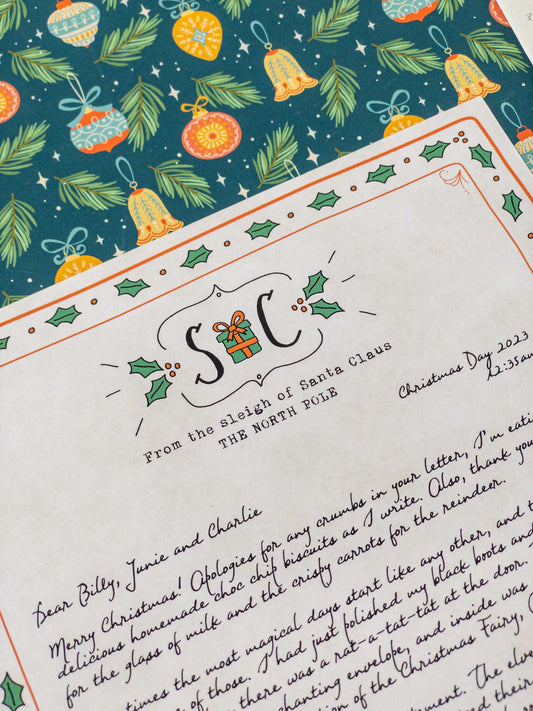 S C
From the sleigh of Santa Claus
THE NORTH POLE
Christmas Day 2023
12:35am
Dear Billy, Junie and Charlie
Merry Christmas! Apologies for any crumbs in your letter, I'm
delicious homemade choc chip biscuits as I write. Also, thank you
for the glass of milk and the crispy carrots for the reindeer.
times the most magical days start like any other, and
of those. I had just polished my black boots and
there was a rat-a-tat-tat at the door.
envelope, and inside was
of the Christmas Fairy,
The
their